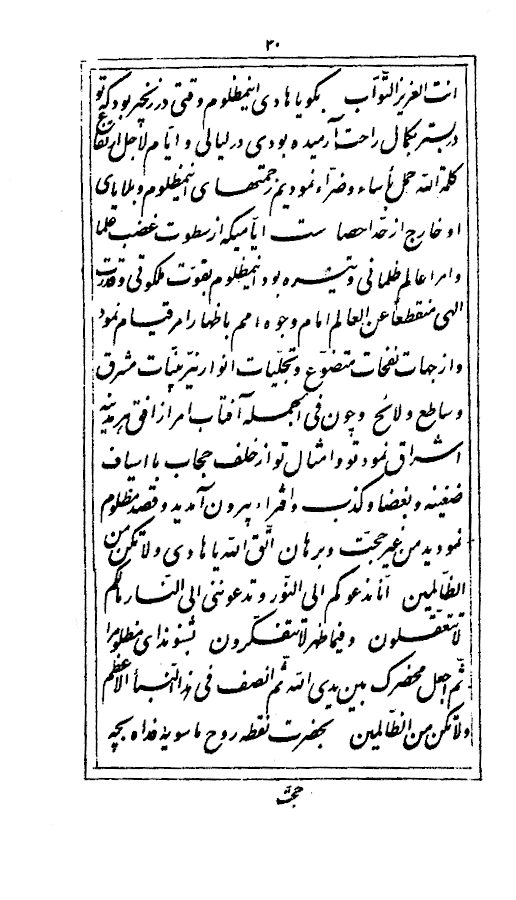 ۳۰
انت العزیز التّوّاب بگو یا هادی اینمظلوم وقتی در زنجیر بود که تو
در بستر بکمال راحت آرمیده بودی در لیالی و ایّام لاجل ارتفاع
کلمة اللّه حمل بأساء و ضرّاء نمودیم زحمتهای اینمظلوم و بلایای
او خارج از حدّ احصاست ایّامیکه از سطوت غضب علما
و امرا عالم ظلمانی و تیره بود اینمظلوم بقوّت ملکوتی و قدرت
الهی منقطعاً عن العالم امام وجوه امم باظهار امر قیام نمود
و از جهات نفحات متضوّع و تجلّیات انوار نیّر بیّنات مشرق
و ساطع و لائح و چون فی الجمله آفتاب امر از افق هر مدینه
اشراق نمود تو و امثال تو از خلف حجاب با اسیاف
ضغینه و بغضا و کذب و افتراء بیرون آمدید و قصد مظلوم
نمودید من غیر حجّت و برهان اتّق اللّه یا هادی و لا تکن من
الظّالمین انّا ندعوکم الی النّور و تدعوننی الی النّار مالکم
لا تتعقّلون و فیما ظهر لا تتفکّرون بشنو ندای مظلوم را
ثمّ اجعل محضرک بین یدی اللّه ثمّ انصف فی هذا النّبأ الاعظم
و لا تکن من الظّالمین بحضرت نقطه روح ما سویه فداه بچه
حجّت